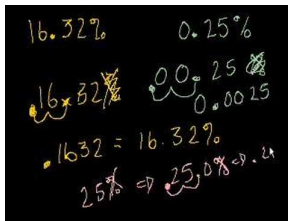 16.32%
0.25%
.16.32%
.00.25%
0.0025
.1632 = 16.32%
25% ⇒ .25.0% ⇒ .2